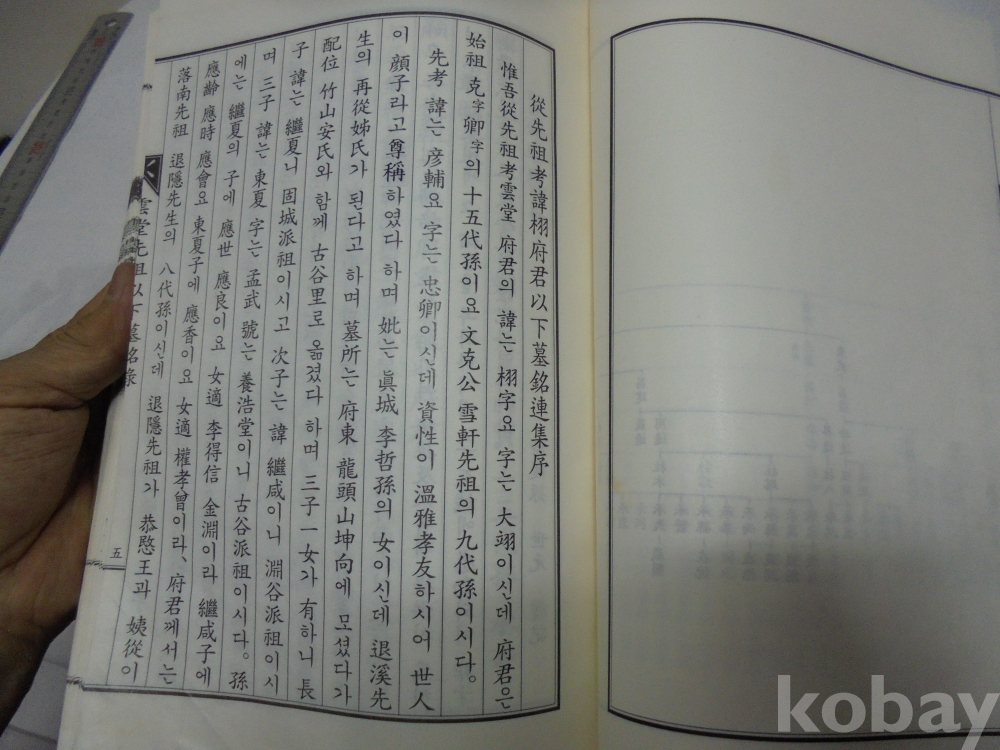 從先祖考諱栩府君以下墓銘連集序
惟吾從先祖考雲堂 府君의 諱는 栩字요 字는 大翊이신데 府君은
始祖 克字卿字의 十五代孫이요 文克公 雪軒先祖의 九代孫이시다。
先考 諱는 彦輔요 字는 忠卿이신데 資性이 溫雅孝友하시어 世人
이 顔子라고 尊稱하였다 하며 妣는 眞城 李哲孫의 女이신데 退溪先
生의 再從姊氏가 된다고 하며 墓所는 府東 龍頭山坤向에 모셨다가
配位 竹山安氏와 함께 古谷里로 옮겼다 하며 三子一女가 有하니 長
子 諱는 繼夏니 固城派祖이시고 次子는 諱 繼咸이니 淵谷派祖이시
며 三子 諱는 東夏 字는 孟武 號는 養浩堂이니 古谷派祖이시다。 孫
에는 繼夏의 子에 應世 應良이요 女適 李得信 金淵이라 繼咸子에
應齡 應時 應會요 東夏子에 應香이요 女適 權孝曾이라、府君께서는
落南先祖 退隱先生의 八代孫이신데 退隱先祖가 恭愍王과 姨從이
雲堂先祖以下墓銘錄
五
kobay